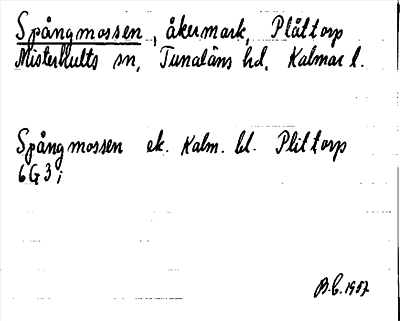 Spångmossen, åkermark, Plåttorp
Misterhults sn, Tunaläns hd, Kalmar l.
Spångmossen ek. Kalm. bl. Plittorp
6G3i
B.C. 1957